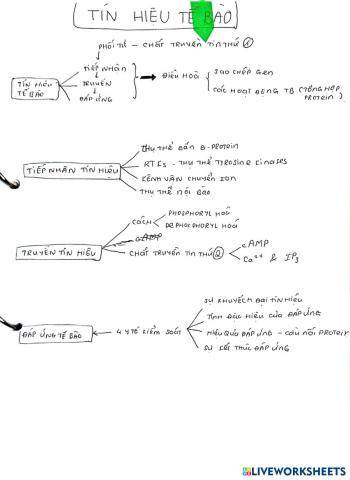 TÍN HIỆU TẾ BÀO
PHỐI TỬ - CHẤT TRUYỀN TIN THỨ 1
TIẾP NHẬN
TRUYỀN
ĐÁP ỨNG
TÍN HIỆU TẾ BÀO
ĐIỀU HOÀ
SAO CHÉP GEN
CÁC HOẠT ĐỘNG TB (TỔNG HỢP PROTEIN)
TIẾP NHẬN TÍN HIỆU
THỤ THỂ GẮN G-PROTEIN
RTKs - THỤ THỂ TYROSINE KINASES
KÊNH VẬN CHUYỂN ION
THỤ THỂ NỘI BÀO
TRUYỀN TÍN HIỆU
CÁCH
PHOSPHORYL HOÁ
DEPHOSPHORYL HOÁ
cAMP
CHẤT TRUYỀN TIN THỨ 2
cAMP
Ca²⁺ & IP₃
ĐÁP ỨNG TẾ BÀO
4 YTẾ KIỂM SOÁT
SỰ KHUYẾCH ĐẠI TÍN HIỆU
TÍNH ĐẶC HIỆU CỦA ĐÁP ỨNG
HIỆU QUẢ ĐÁP ỨNG - CẦU NỐI PROTEIN
SỰ KẾT THÚC ĐÁP ỨNG
LIVEWORKSHEETS